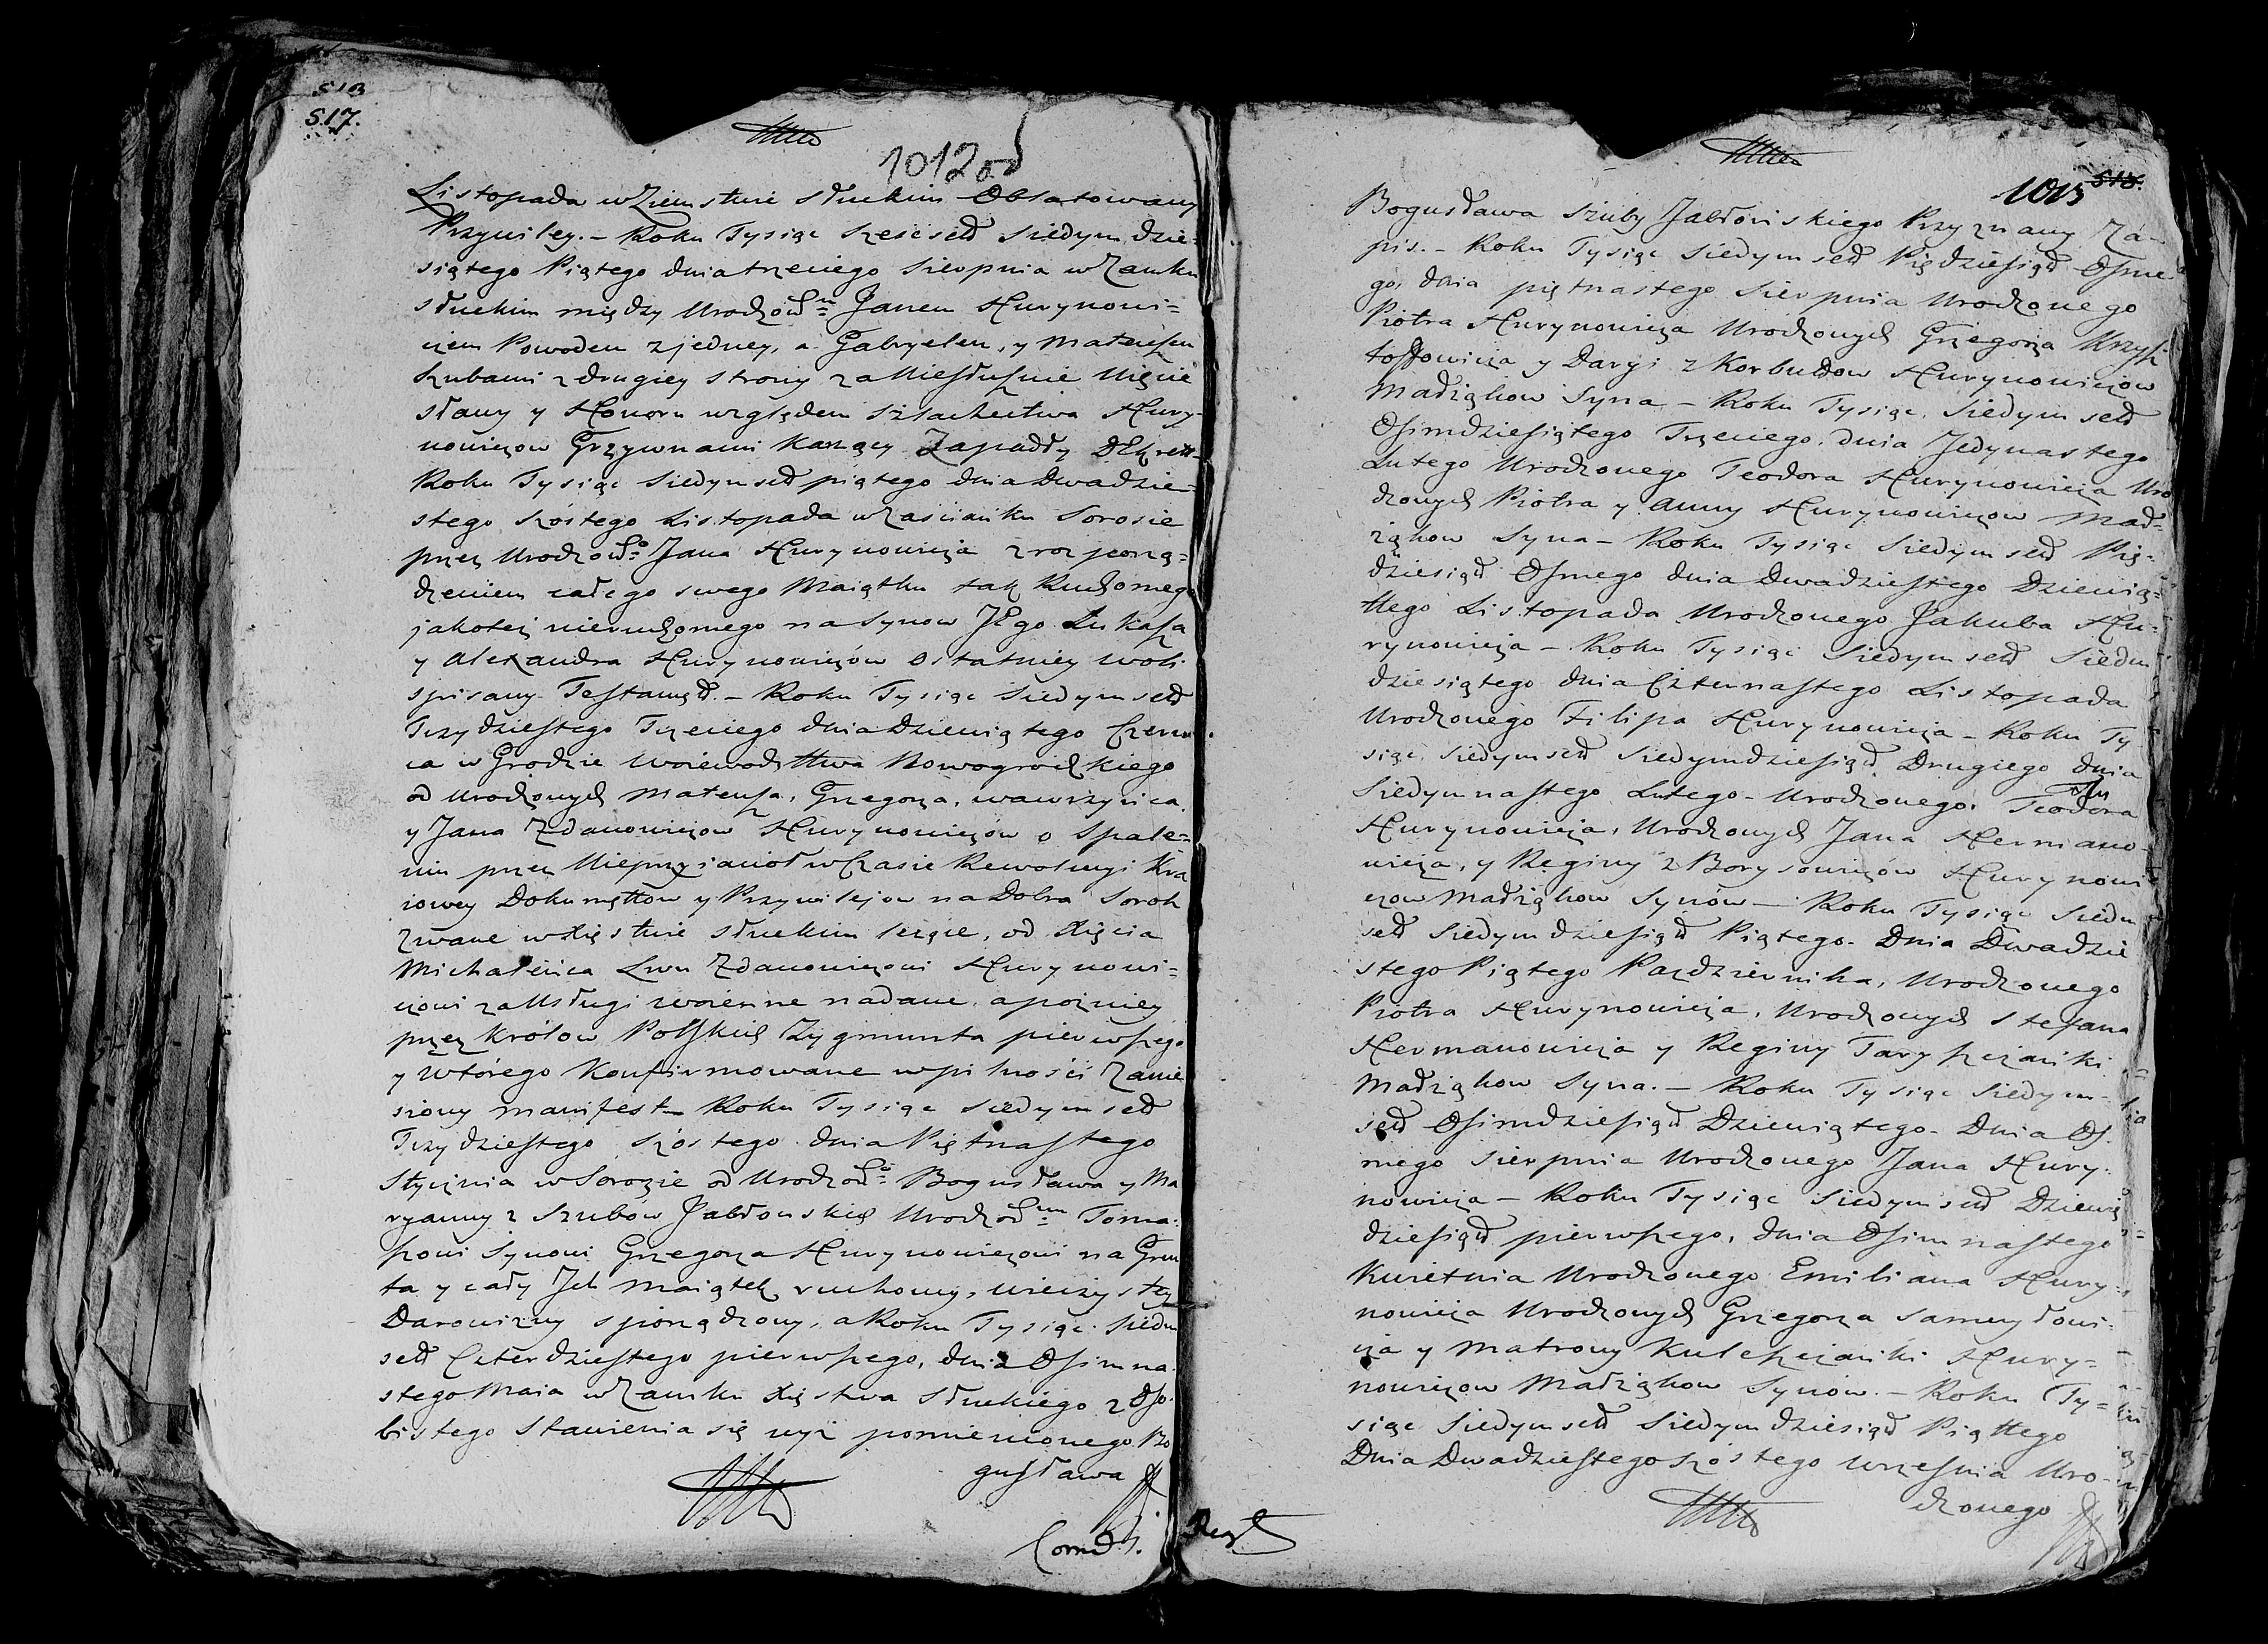 513
517.
1012 od
Listopada w Ziemstwie Słuckim Oblatowany
Przywiley. – Roku Tysiąc Sześćset Siedym dzie=
siątego Piątego dnia trzeciego Sierpnia w Zamku
Słuckim między Urodzonm Janem Hurynowi=
czem Powodem z jedney, a Gabryelem, y Mateuszem
Szubami z drugiey strony za Niesłusznie Uięcie
sławy y Honoru względem Szlachectwa Hury=
nowiczow Grzywnami Karzący Zapadły DEkrett –
Roku Tysiąc Siedymset piątego dnia Dwadzie=
stego szóstego Listopada w Zaścianku Sorosie
przez Urodzongo Jana Hurynowicza z rozporzą=
dzeniem całego swego Maiątku tak Ruchomego
jakoteż nieruchomego na Synow JEgo Łukasza
y Alexandra Hurynowiczów ostatniey woli
spisany Testament. – Roku Tysiąc Siedymset
Trzydziestego Trzeciego dnia Dziewiątego Czerw=
ca w Grodzie Woiewodsttwa Nowogrodzkiego
od Urodzonych Mateusza, Grzegorza, Wawrzyńca,
y Jana Zdanowiczow Hurynowiczów o Spale=
niu przez Nieprzyiaciół w Czasie Rewolucyi Kra
iowey Dokumentow y Przywilejow na Dobra Soroh
zwane w Xięstwie Słuckim leżące, od Xięcia
Michałewicza Lwu Zdanowiczowi Hurynowi=
czowi za Usługi woienne nadane, a pozniey
przez Królow Polskich Zygmunta pierwszego
y Wtórego Konfirmowane w pilności Zanie
siony manifest – Roku Tysiąc Siedymset
Trzydziestego szóstego dnia Piętnastego
Stycznia w Sorozie od Urodzonch Bogusława y Ma
ryanny z Szubow Jabłonskich Urodzonmu Toma=
szowi Synowi Grzegorza Hurynowiczowi na Grun
ta y cały Jch Maiątek ruchomy, wieczystey
Darowizny sporządzony, a Roku Tysiąc Siedm
set Czterdziestego pierwszego, dnia Osimna=
stego Maia w Zamku Xięstwa Słuckiego z Oso=
bistego Stawienia się wyż pomienionego Bo
gusława
1013 518.
Bogusława Szuby Jabłońskiego Przyznany Za=
pis. – Roku Tysiąc Siedymset Pięćdziesiąt Osme=
go, dnia piętnastego Sierpnia Urodzonego
Piotra Hurynowicza Urodzonych Grzegorza Krzysz
toffowicza y Daryi z Korbuttow Hurynowiczow
Małżąkow Syna – Roku Tysiąc Siedymset
Osimdziesiątego Trzeciego, dnia Jedynastego
Lutego Urodzonego Teodora Hurynowicza Uro
dzonych Piotra y Anny Hurynowiczow Mał=
żąkow Syna – Roku Tysiąc Siedymset Pię=
dziesiąt Osmego dnia Dwadziestego Dziewią=
ttego Listopada Urodzonego Jakuba Hu=
rynowicza – Roku Tysiąc Siedymset Siedm
dziesiątego dnia Czternastego Listopada
Urodzonego Filipa Hurynowicza – Roku Ty=
siąc Siedymset Siedymdziesiąt Drugiego dnia
Siedymnastego Lutego – Urodzonego Teodora
Hurynowicza, Urodzonych Jana Hermano=
wicza, y Reginy z Borysowiczów Hurynowi
czow Małżąkow Synów – Roku Tysiąc Siedm
set Siedymdziesiąt Piątego. Dnia Dwadzie
stego Piątego Pazdziernika, Urodzonego
Piotra Hurynowicza, Urodzonych Stefana
Hermanowicza y Reginy Taryszczanki
Małżąkow Syna. – Roku Tysiąc Siedym=
set Osimdziesiąt Dziewiątego. Dnia Os=
mego Sierpnia Urodzonego Jana Hury=
nowicza – Roku Tysiąc Siedymset Dziewię
dziesiąt pierwszego, dnia Osimnastego
Kwietnia Urodzonego Emiliana Hury=
nowicza Urodzonych Grzegorza Samuyłowi=
cza y Matrony Kuleszczanki Hury=
nowiczow Małżąkow Synów. – Roku Ty=
siąc Siedymset Siedymdziesiąt Piąttego
Dnia Dwadziestego szóstego Września Uro=
dzonego